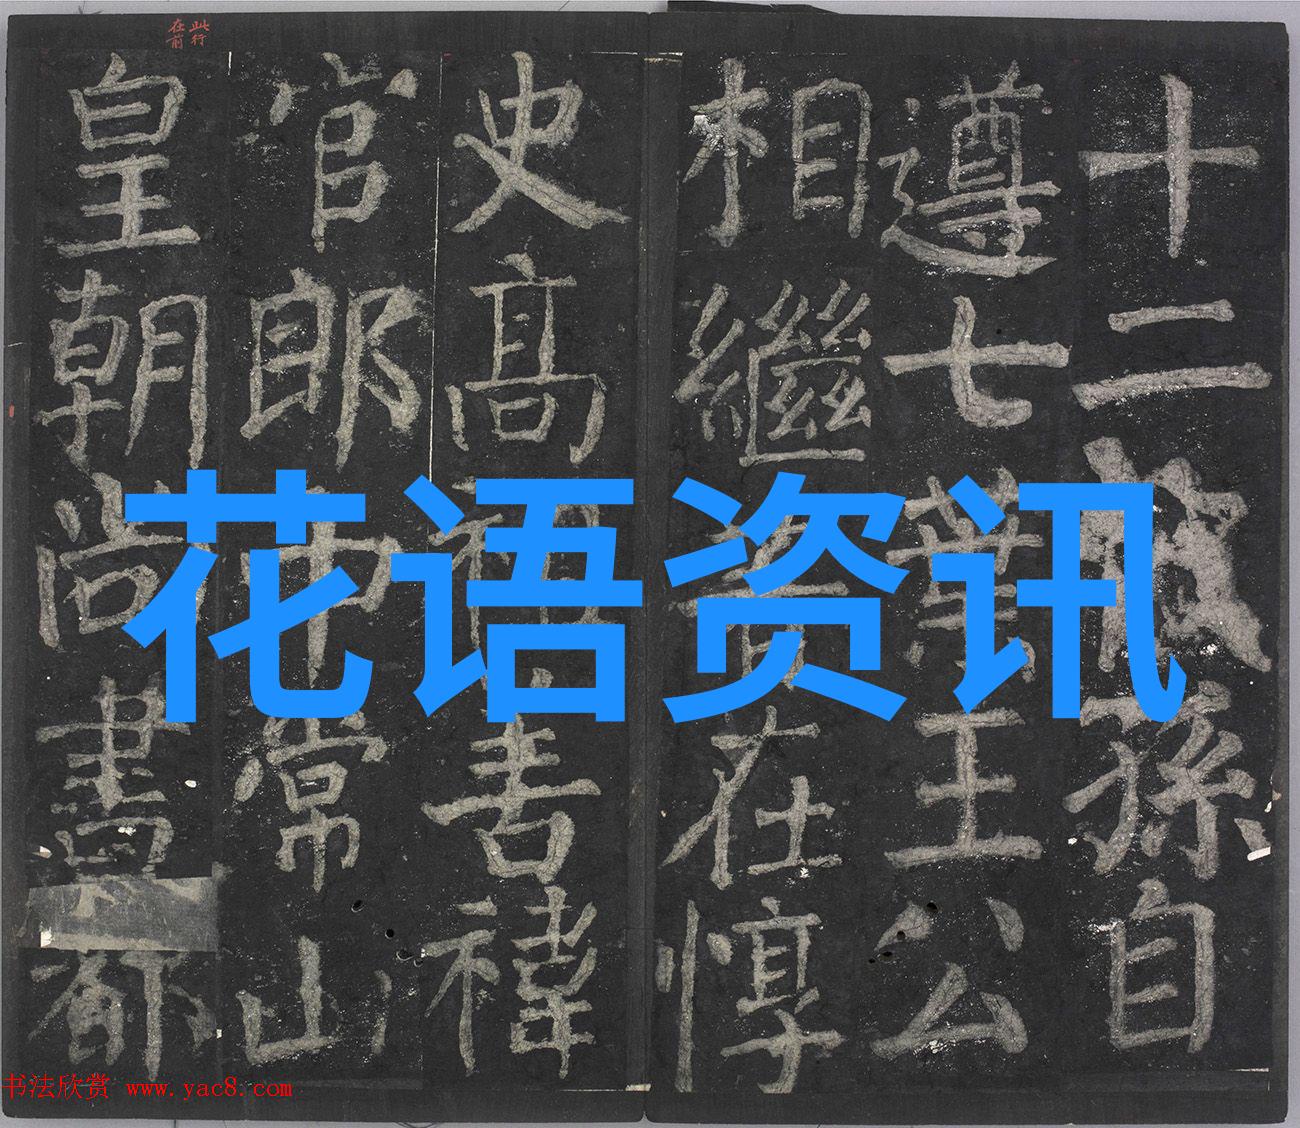 此行
在前
十二孫自
遵七王公
相繼在惇
史高禕
官郎中常山
皇朝尚書
花语资讯
书法欣赏 www.yac8.com